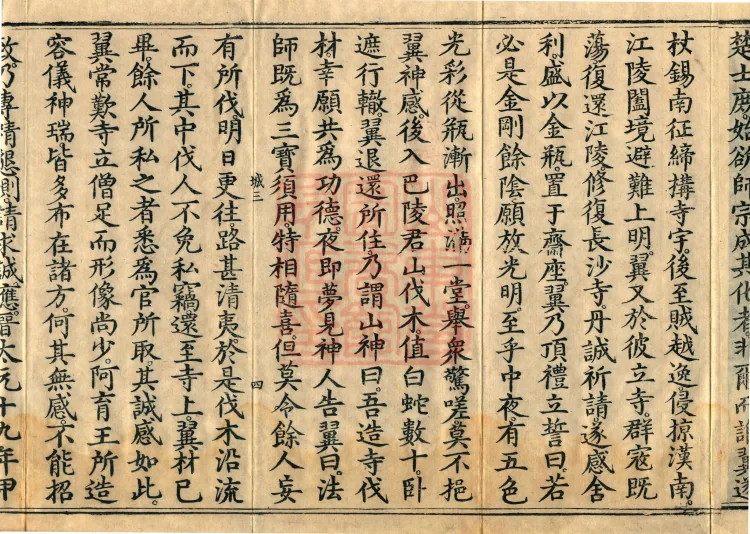 楚士庶始欲師宗成其化者非爾而誰翼遂
杖錫南征締搆寺宇。後至賊越逸侵掠漢南。
江陵闔境避難上明。翼又於彼立寺。群寇既
蕩復還江陵。修復長沙寺。丹誠祈請。遂感舍
利。盛以金瓶。置于齋座。翼乃頂禮立誓曰。若
必是金剛餘陰。願放光明。至乎中夜。有五色
光彩從瓶漸出。照滿一堂。舉衆驚嗟。莫不挹
翼神感。後入巴陵君山伐木。值白蛇數十。卧
遮行轍。翼退還所住。乃謂山神曰。吾造寺伐
材。幸願共爲功德。夜即夢見神人告翼曰。法
師既爲三寶須用。特相隨喜。但莫令餘人妄
城三 四
有所伐。明日更往路甚清夷。於是伐木沿流
而下。其中伐人不免私竊。還至寺上。翼材已
畢。餘人所私之者悉爲官所取。其誠感如此。
翼常歎寺立僧足而形像尚少。阿育王所造
容儀神瑞皆多布在諸方。何其無感。不能招
致乃專精懇惻。請求誠應。晉太元十九年甲